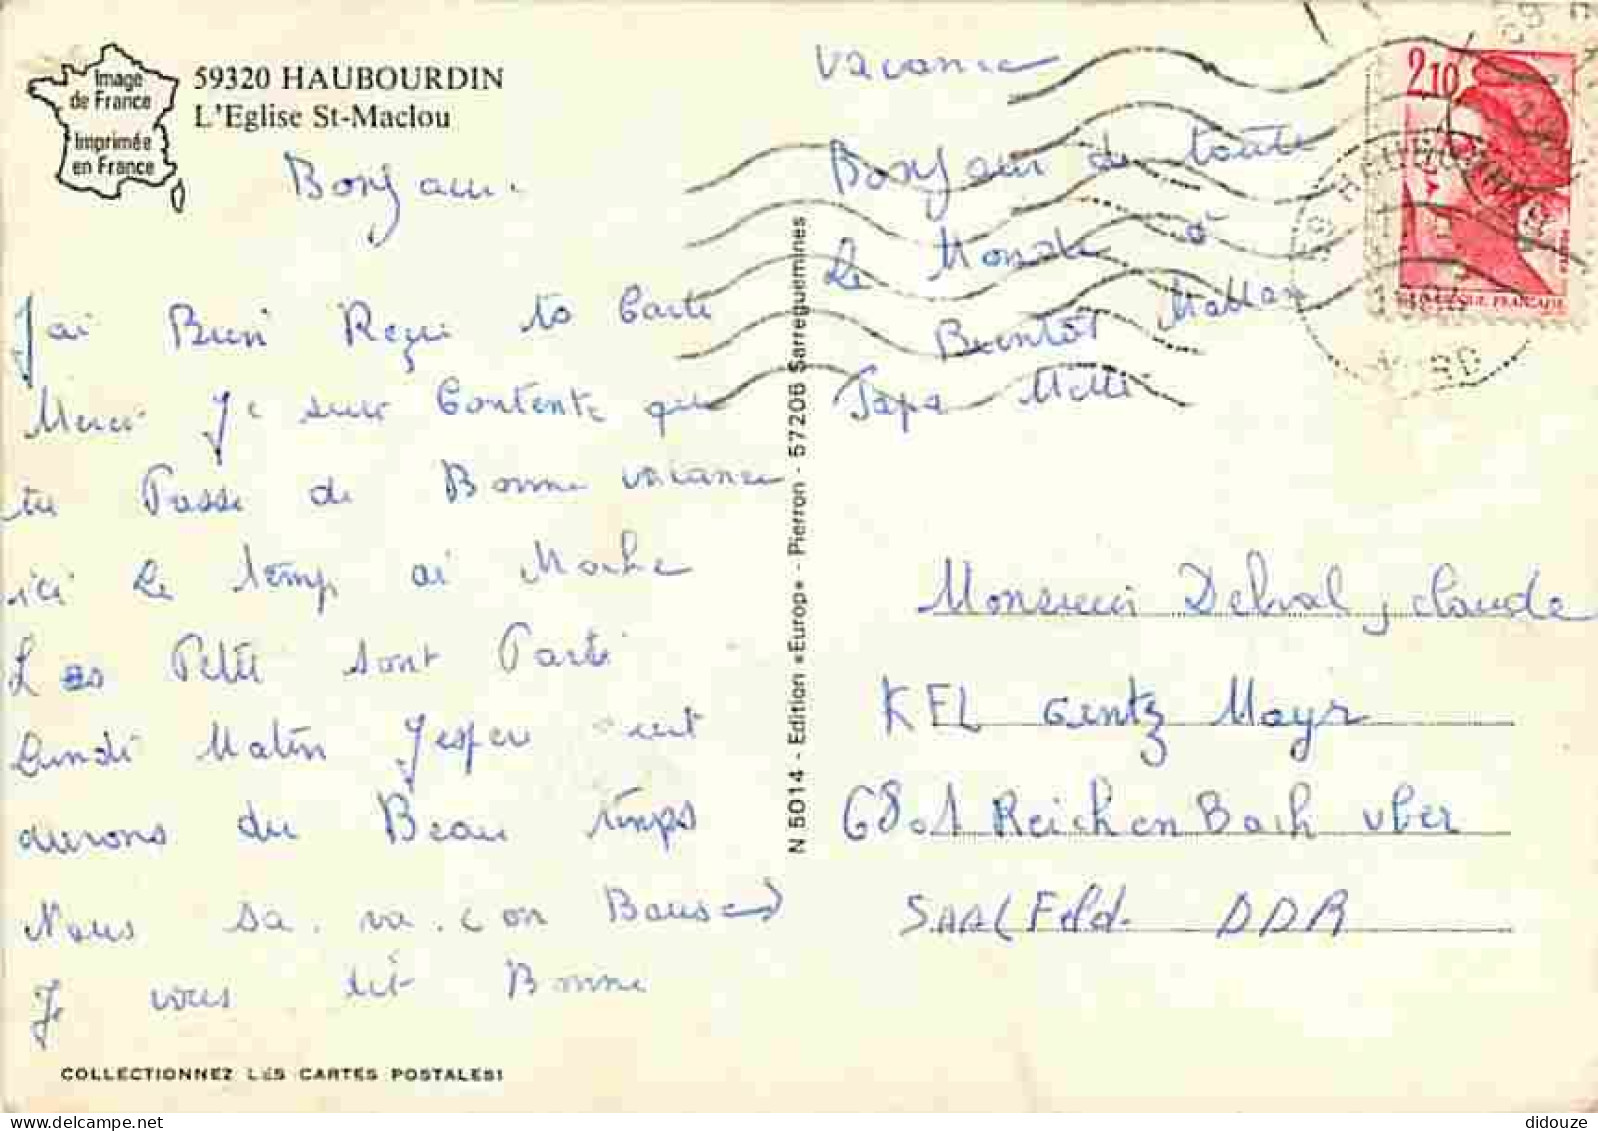 Image
de France
Imprimée
en France
59320 HAUBOURDIN
L'Eglise St-Maclou
Bonjour.
J'ai Bien Reçu ta Carte
Merci Je suis Contente que
tu Passe de Bonne vacance
ici Le temp ai Moche
Les Petit sont Parti
Lundi Matin J'esper
aurons du Beau temps
Nous sa. va. con
Je vous dit Bonne
COLLECTIONNEZ LES CARTES POSTALES!
N 5014 - Edition «Europ» - Pierron - 57206 Sarreguemines
vacance
Bonjour de toute
Le Monde à
Bientôt Maman
Papa
2,10
REPUBLIQUE FRANÇAISE
Monsieur Delval, claude
KFL Gentz Mayr
6801 ReichenBach uber
SAALFeld. DDR
didouze